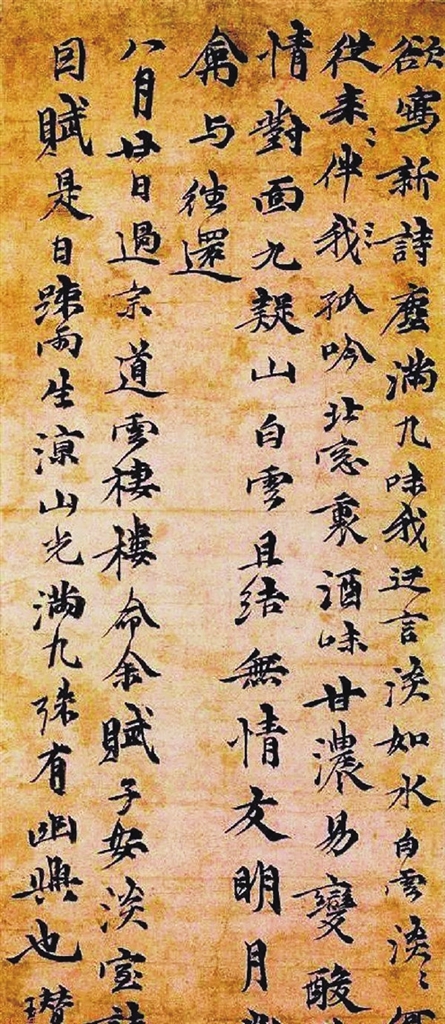 欲寫新詩塵滿几味我迂言淡如水白雲淡〻
從来〻伴我〻孤吟北窓裏酒味甘濃易變酸
情對面九疑山白雲且結無情友明月
禽与往還
八月廿日過宗道雲棲樓命余賦子安淡室詩
囙賦是日踈雨生涼山光滿几殊有幽興也瓚